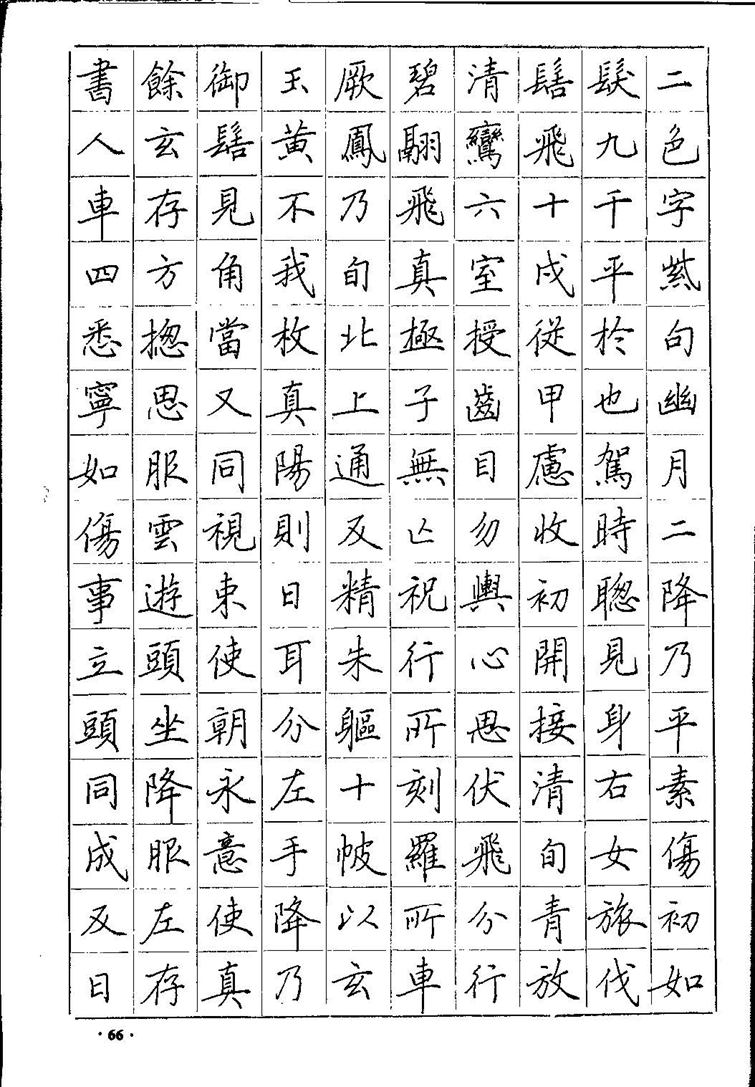 二色字紫句幽月二降乃平素傷初如
髮九千平於也駕時聰見身右女旅伐
髻飛十戍從甲慮收初開接清旬青放
清鸞六室授齒目勿輿心思伏飛分行
碧翮飛真極子無亡祝行所刻羅所車
厥鳳乃旬北上通及精朱軀十帔以玄
玉黃不我枚真陽則日耳分左手降乃
御髻見角當又同視束使朝永意使真
餘玄存方揔思服雲遊頭坐降服左存
書人車四悉寧如傷事立頭同成及日
·66·